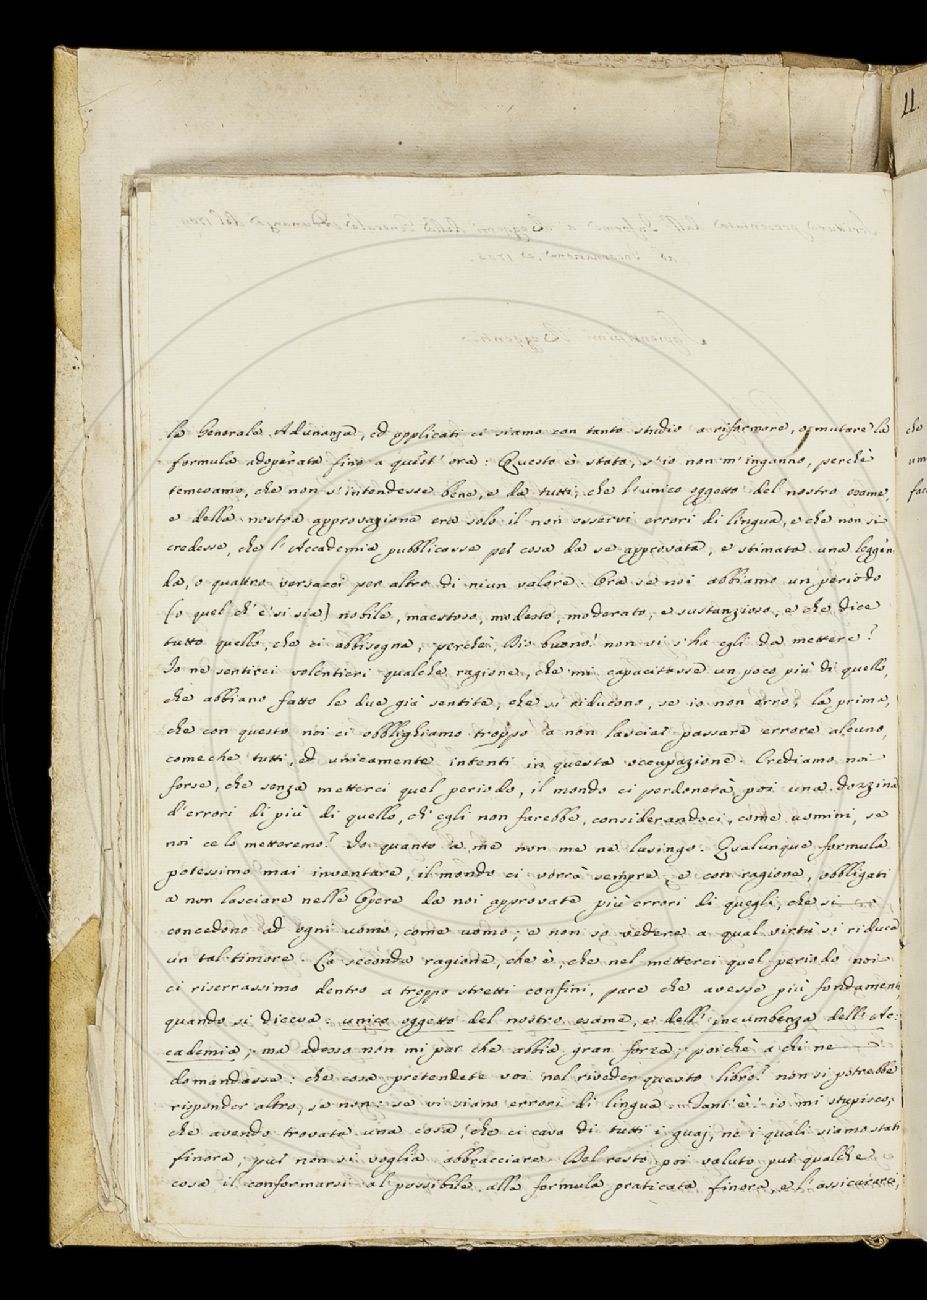 la Generale Adunanza, ed applicati ci siamo con tanto studio a riformare, o mutare la
formula adoperata fino a quest' ora: Questo è stato, s'io non m'inganno, perchè
temevamo, che non s'intendesse bene, e da tutti, che l'unico oggetto del nostro esame,
e della nostra approvazione era solo il non esservi errori di lingua, e che non si
credesse, che l'Accademia pubblicasse per cosa da se approvata, e stimata una leggen
da, o quattro versacci per altro di niun valore. Ora se noi abbiamo un periodo
(o quel ch'e' si sia) nobile, maestoso, modesto, moderato, e sustanzioso, e che dice
tutto quello, che ci abbisogna, perchè, Dio buono! non vi s'ha egli da mettere?
Io ne sentirei volentieri qualche ragione, che mi capacitasse un poco più di quello,
che abbiano fatto le due già sentite, che si riducono, se io non erro; la prima,
che con questo noi ci obblighiamo troppo a non lasciar passare errore alcuno,
comeche tutti, ed unicamente intenti in questa occupazione. Crediamo noi
forse, che senza metterci quel periodo, il mondo ci perdonerà poi una dozzina
d'errori di più di quello, ch'egli non farebbe, considerandoci, come uomini, se
noi ce lo metteremo? Io quanto a me non me ne lusingo. Qualunque formula
potessimo mai inventare, il mondo ci vorrà sempre, e con ragione, obbligati
a non lasciare nelle Opere da noi approvate più errori di quegli, che si
concedono ad ogni uomo, come uomo; e non so vedere a qual virtù si riduca
un tal timore. La seconda ragione, che è, che nel metterci quel periodo noi
ci riserrassimo dentro a troppo stretti confini, pare che avesse più fondamento,
quando si diceva: unico oggetto del nostro esame, e dell' incumbenza dell' Ac:
cademia; ma adesso non mi par che abbia gran forza; poichè a chi ne
domandasse: che cosa pretendete voi nel riveder questo libro? non si potrebbe
risponder altro, se non: se vi siano errori di lingua. Tant'è! io mi stupisco,
che avendo trovata una cosa, che ci cava di tutti i guaj, ne i quali siamo stati
finora, pur non si voglia abbracciare. Del resto poi valuto pur qualche
cosa il conformarsi al possibile alla formula praticata finora, e l'assicurarci,
11.
che